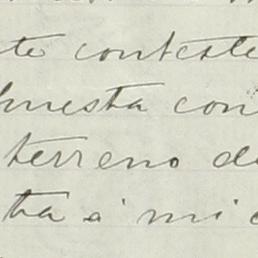 te conteste
puesta con
terreno de
ta á mi c